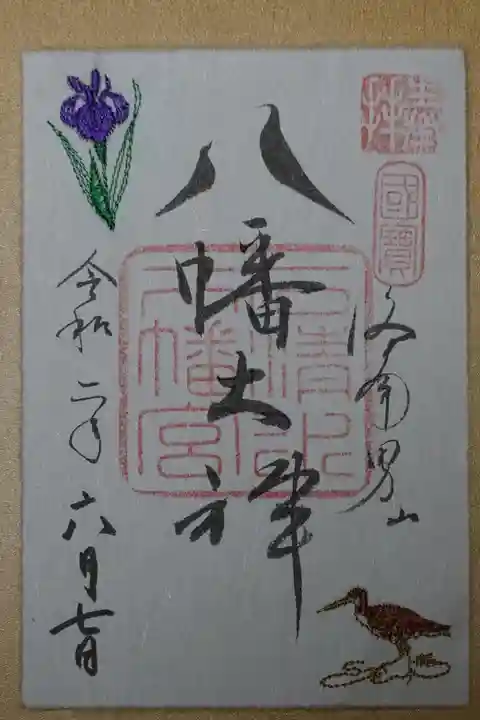 奉拝
國寶
洛南男山
八幡大神
石清水
八幡宮
令和二年六月七日